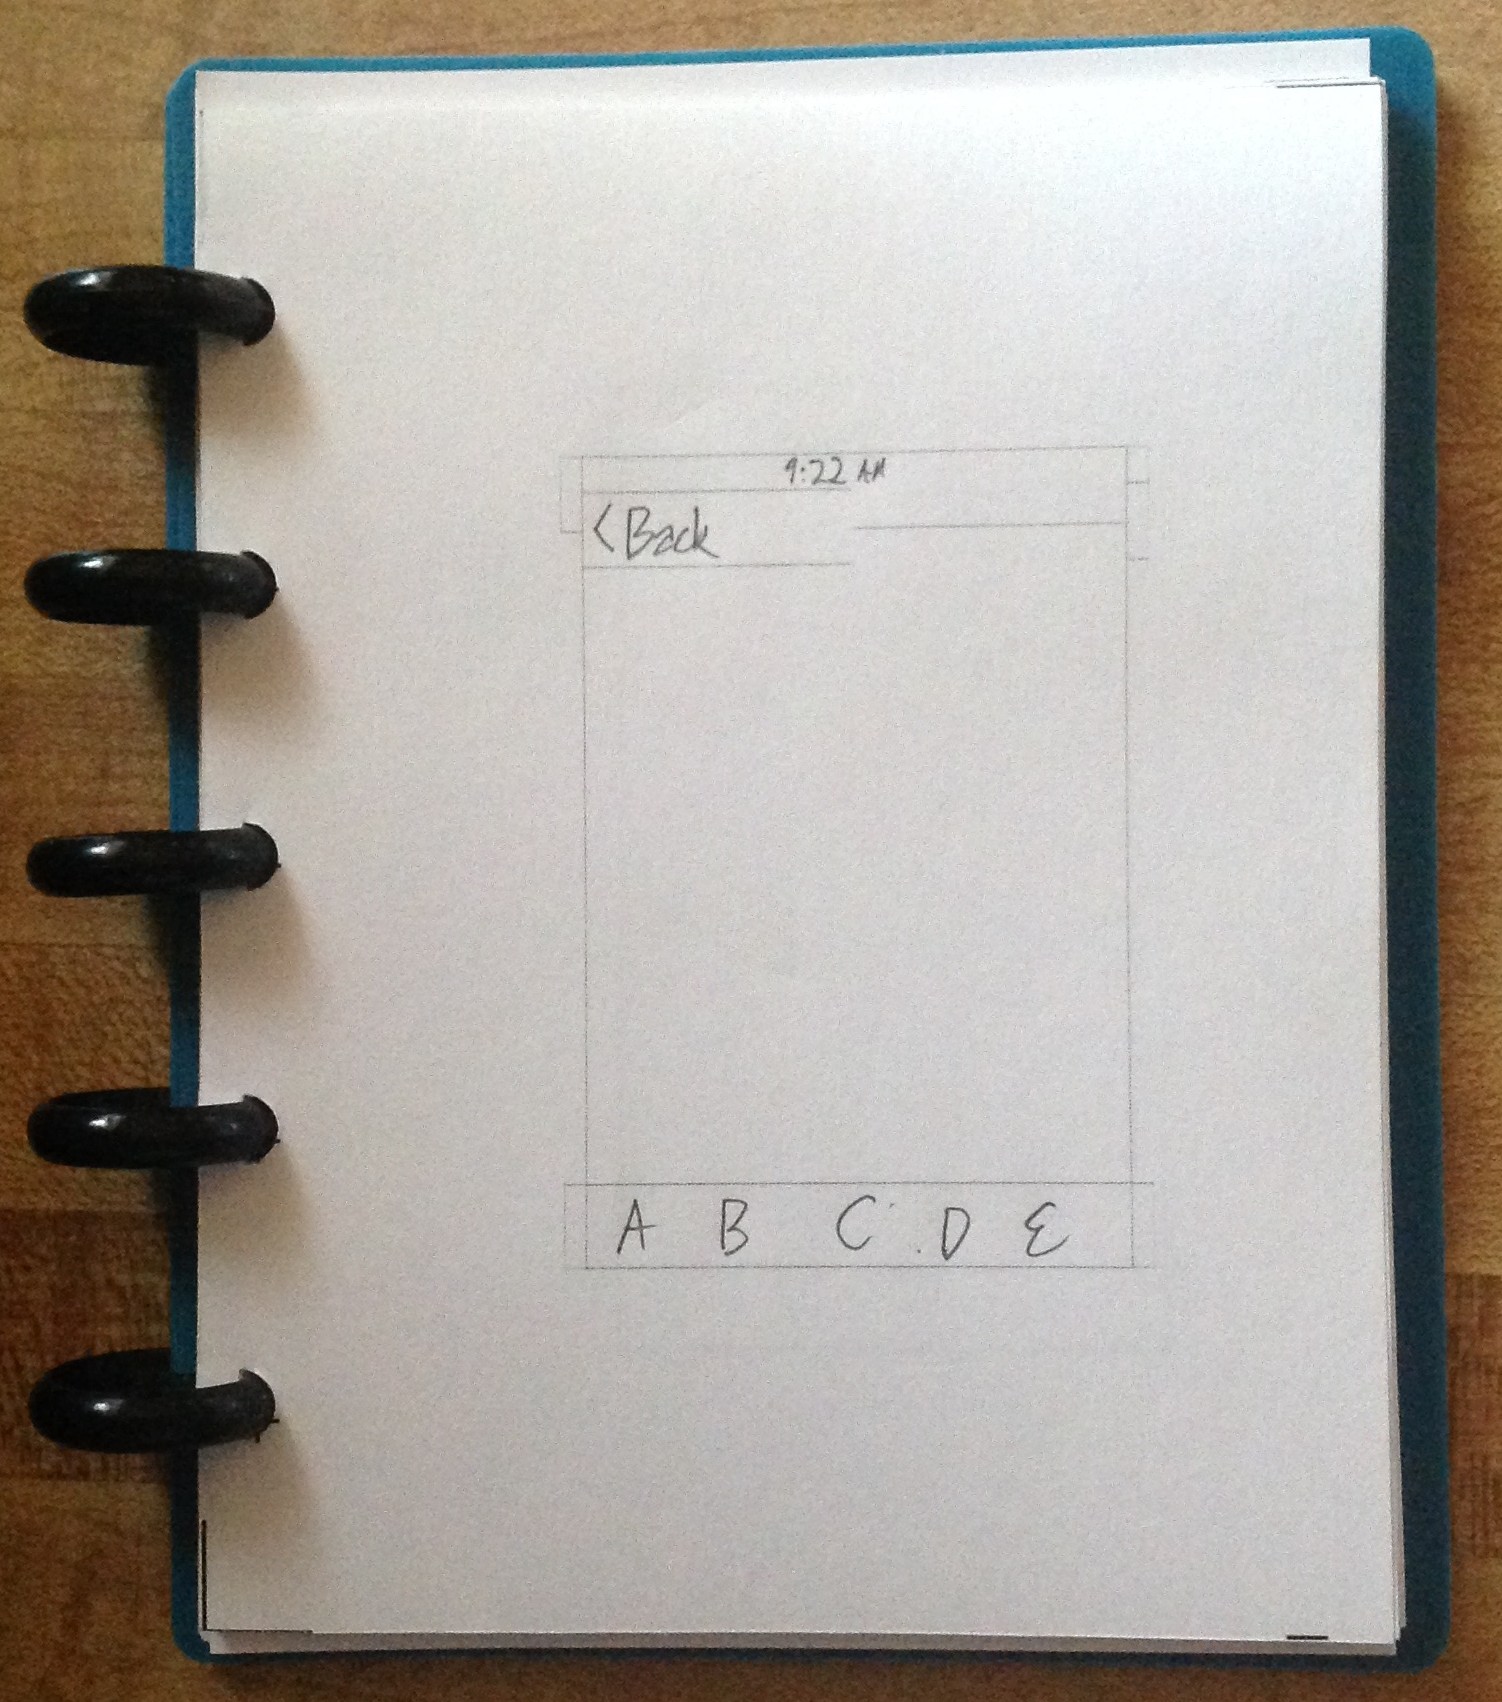 9:22 AM
<Back
A B C D E